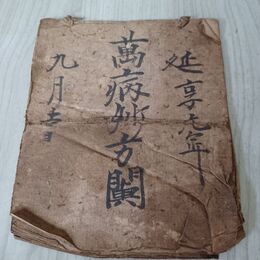 延享元年
萬病妙方
九月吉日